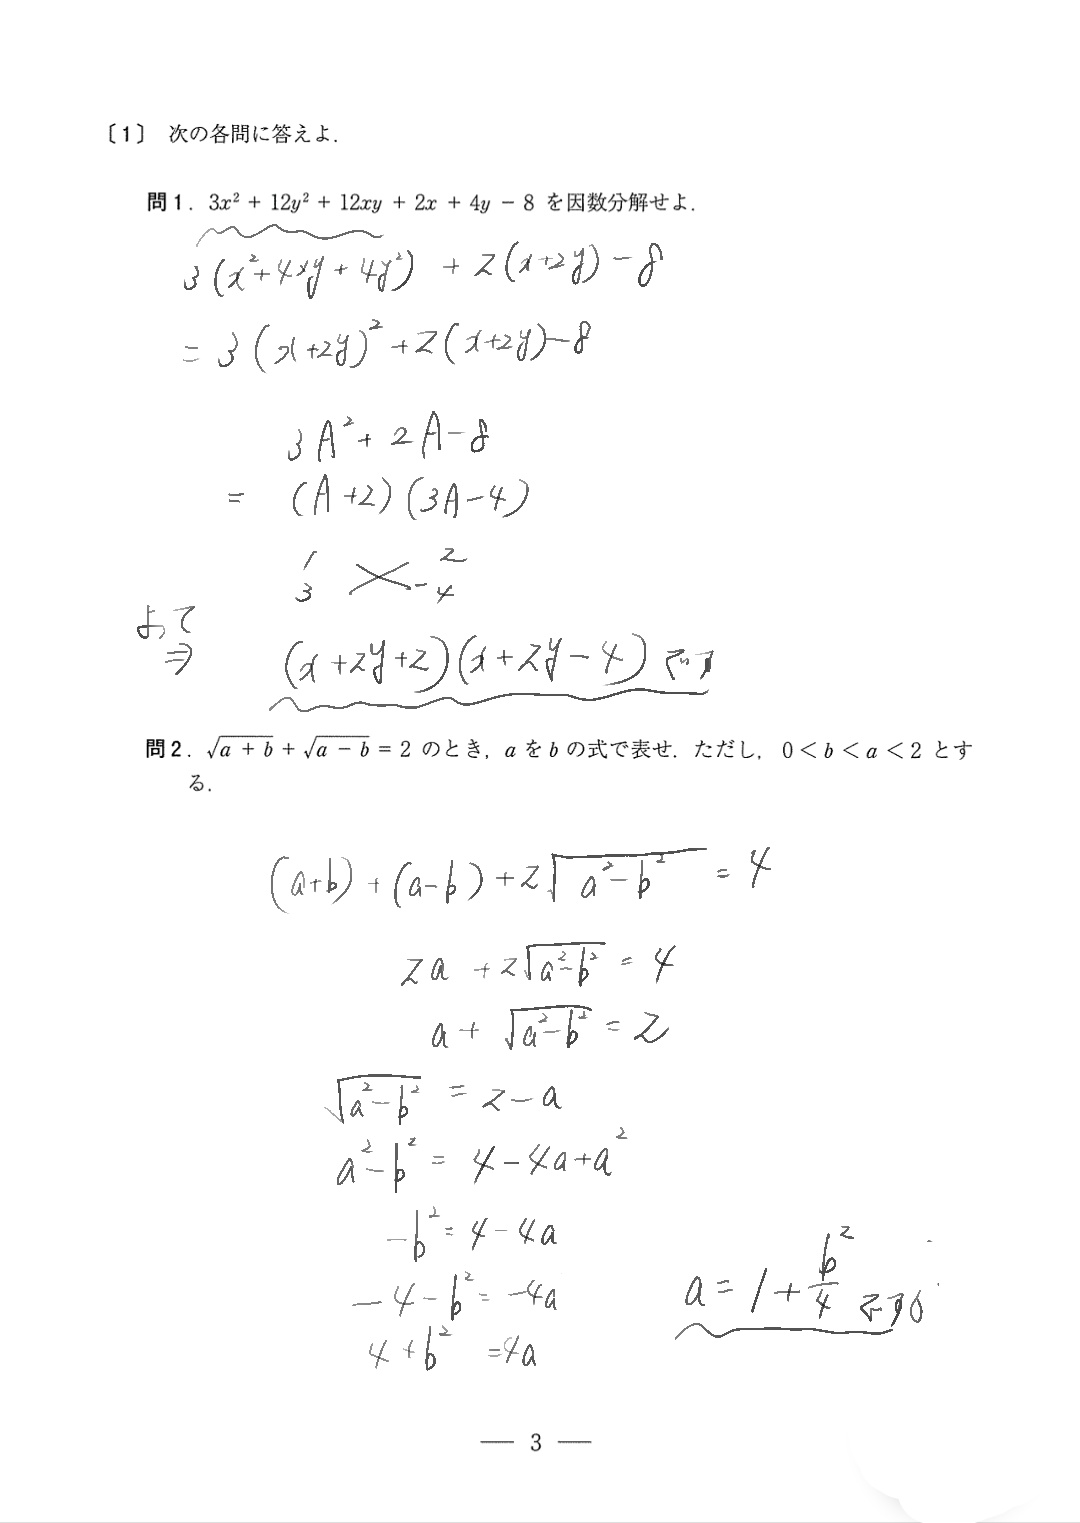 〔1〕 次の各問に答えよ.
問1. 3x² + 12y² + 12xy + 2x + 4y − 8 を因数分解せよ.
3(x²+4xy+4y²) +2(x+2y)−8
=3(x+2y)²+2(x+2y)−8
3A²+2A−8
= (A+2)(3A−4)
1 2
3 −4
よって
⇒ (x+2y+2)(x+2y−4)です
問2. √(a + b) + √(a − b) = 2 のとき, a を b の式で表せ. ただし, 0 < b < a < 2 とす
る.
(a+b)+(a−b)+2√(a²−b²) = 4
2a +2√(a²−b²) = 4
a+ √(a²−b²) = 2
√(a²−b²) = 2−a
a²−b² = 4−4a+a²
−b² = 4−4a
−4−b² = −4a
4+b² =4a
a = 1+b²/4 です。
— 3 —